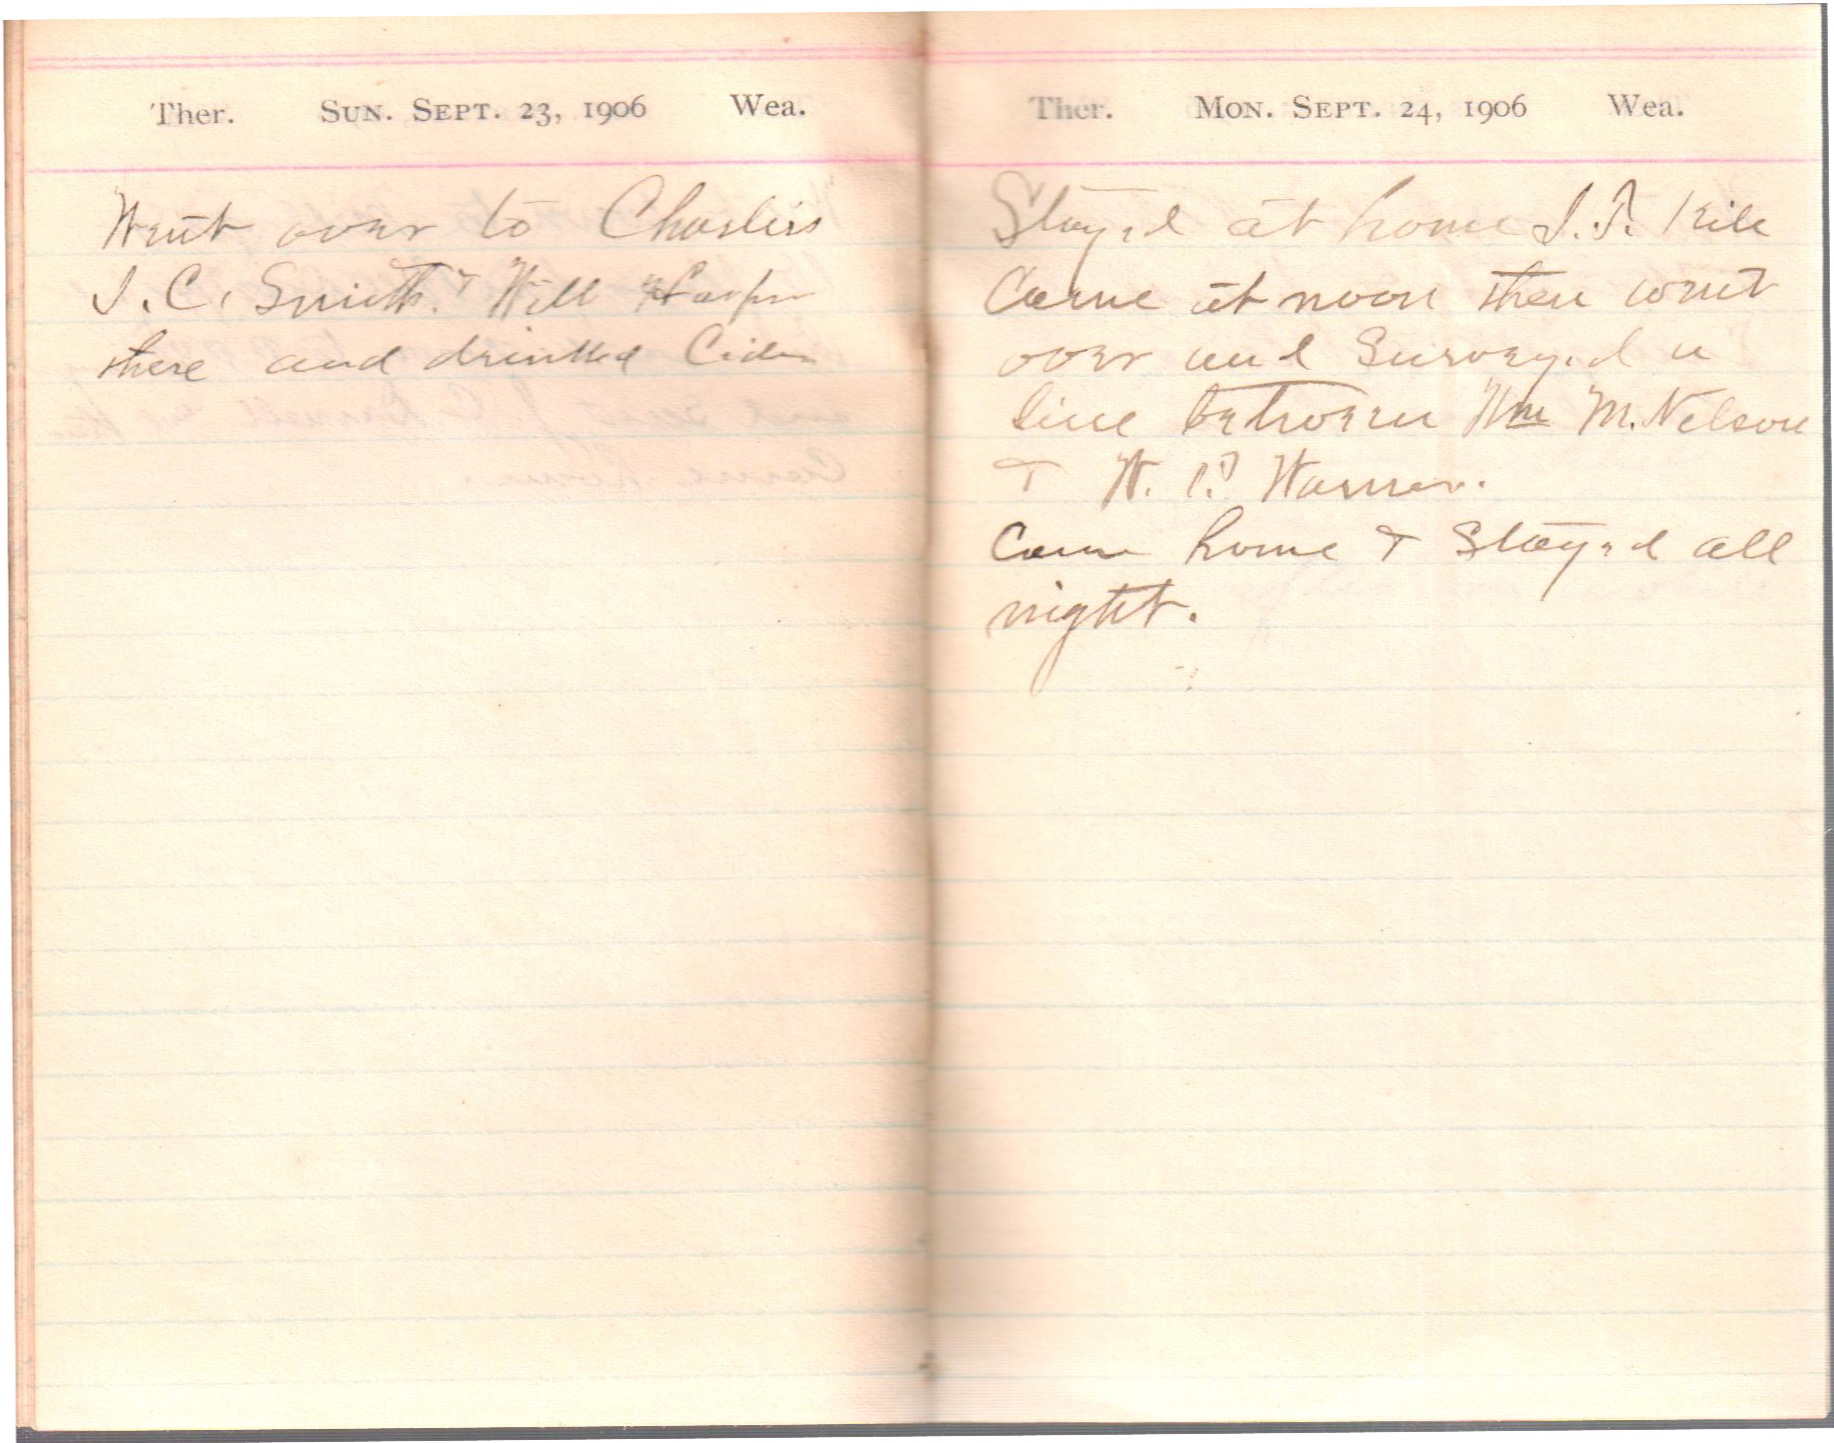 Ther. Sun. Sept. 23, 1906 Wea.
Went over to Charlies
J. C. Smith & Will Harper
there and drinked Cider
Ther. Mon. Sept. 24, 1906 Wea.
Stayed at home J. T.
Came at noon then went
over and Surveyed a
line between Wm M. Nelson
& W. P. Warner.
Came home & Stayed all
night.